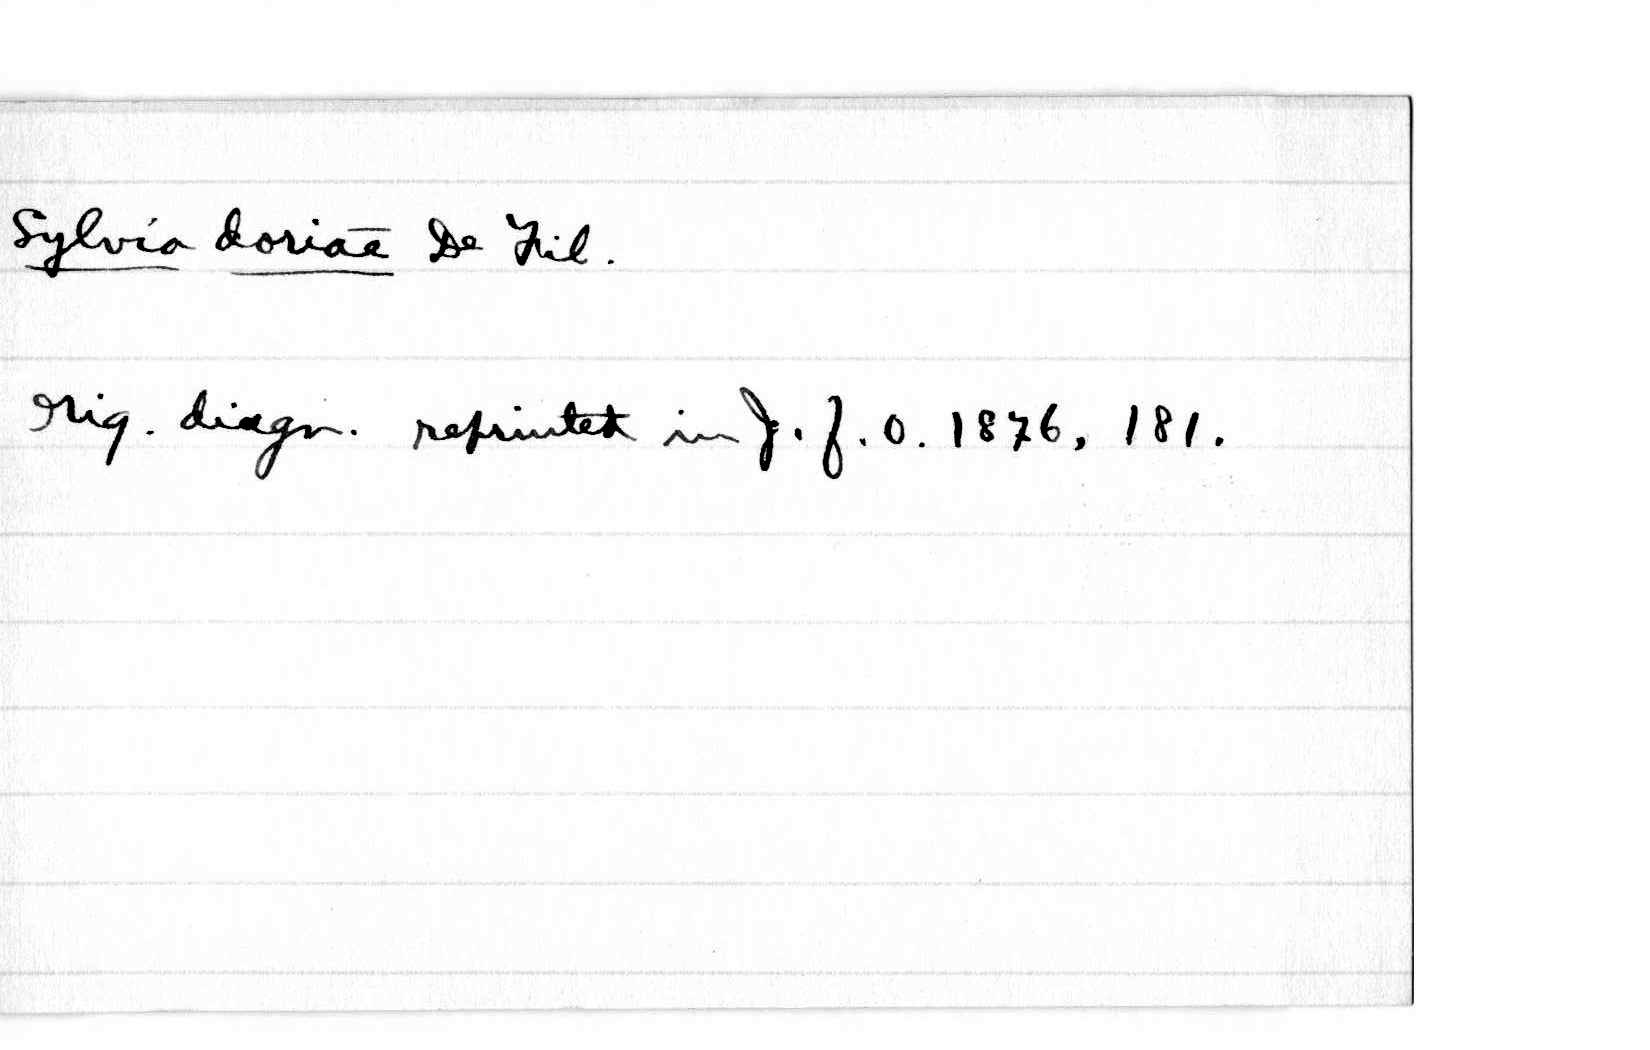 Sylvia doriae De Fil.
orig. diagn. reprinted in J. f. O. 1876, 181.